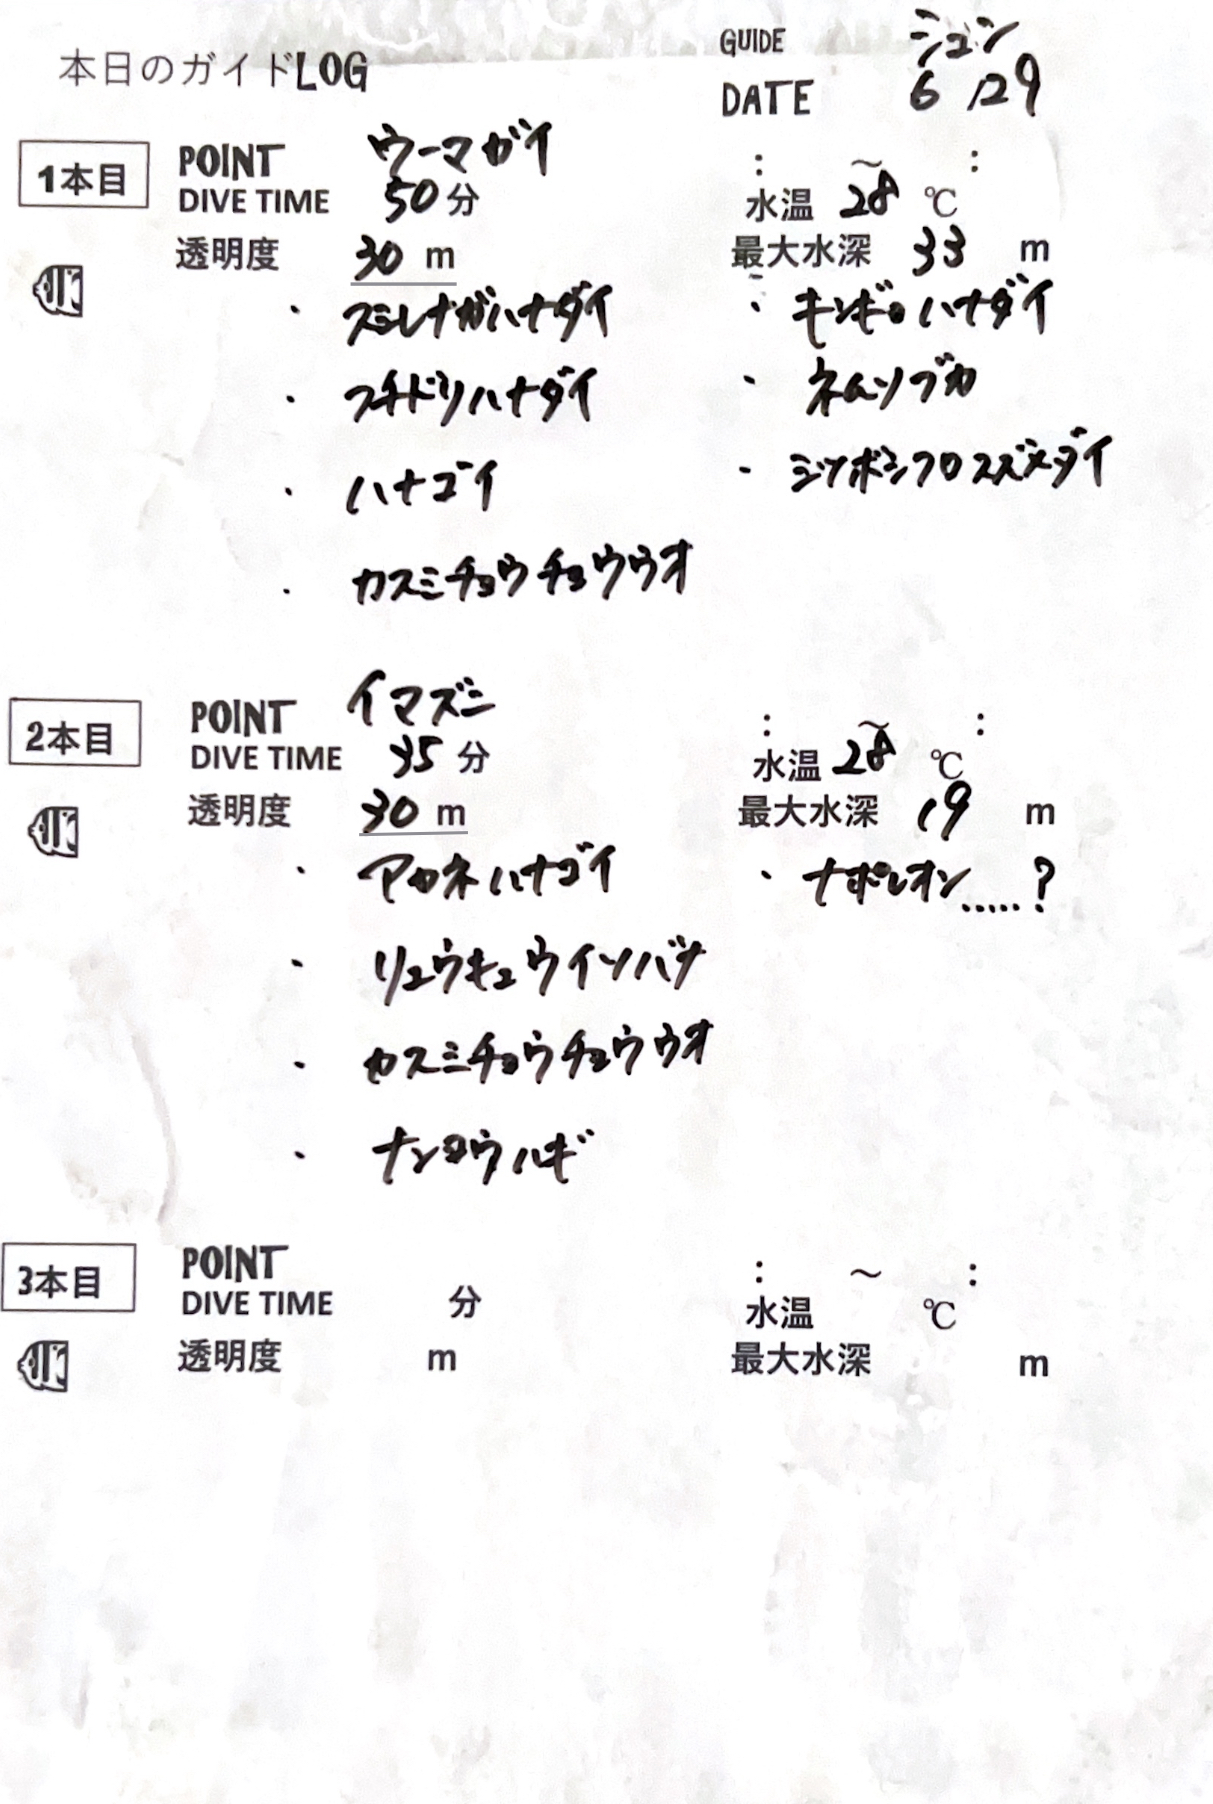 本日のガイドLOG
GUIDE ジュン
DATE 6/29
1本目
POINT ウーマガイ : ～ :
DIVE TIME 50分 水温 28 ℃
透明度 30 m 最大水深 33 m
・ スミレナガハナダイ ・ キンギョハナダイ
・ フチドリハナダイ ・ ネムリブカ
・ ハナゴイ ・ ミツボシクロスズメダイ
・ カスミチョウチョウウオ
2本目
POINT イマズニ : ～ :
DIVE TIME 35 分 水温 28 ℃
透明度 30 m 最大水深 19 m
・ アカネハナゴイ ・ ナポレオン.....?
・ リュウキュウイソバナ
・ カスミチョウチョウウオ
・ ナンヨウハギ
3本目
POINT : ～ :
DIVE TIME 分 水温 ℃
透明度 m 最大水深 m